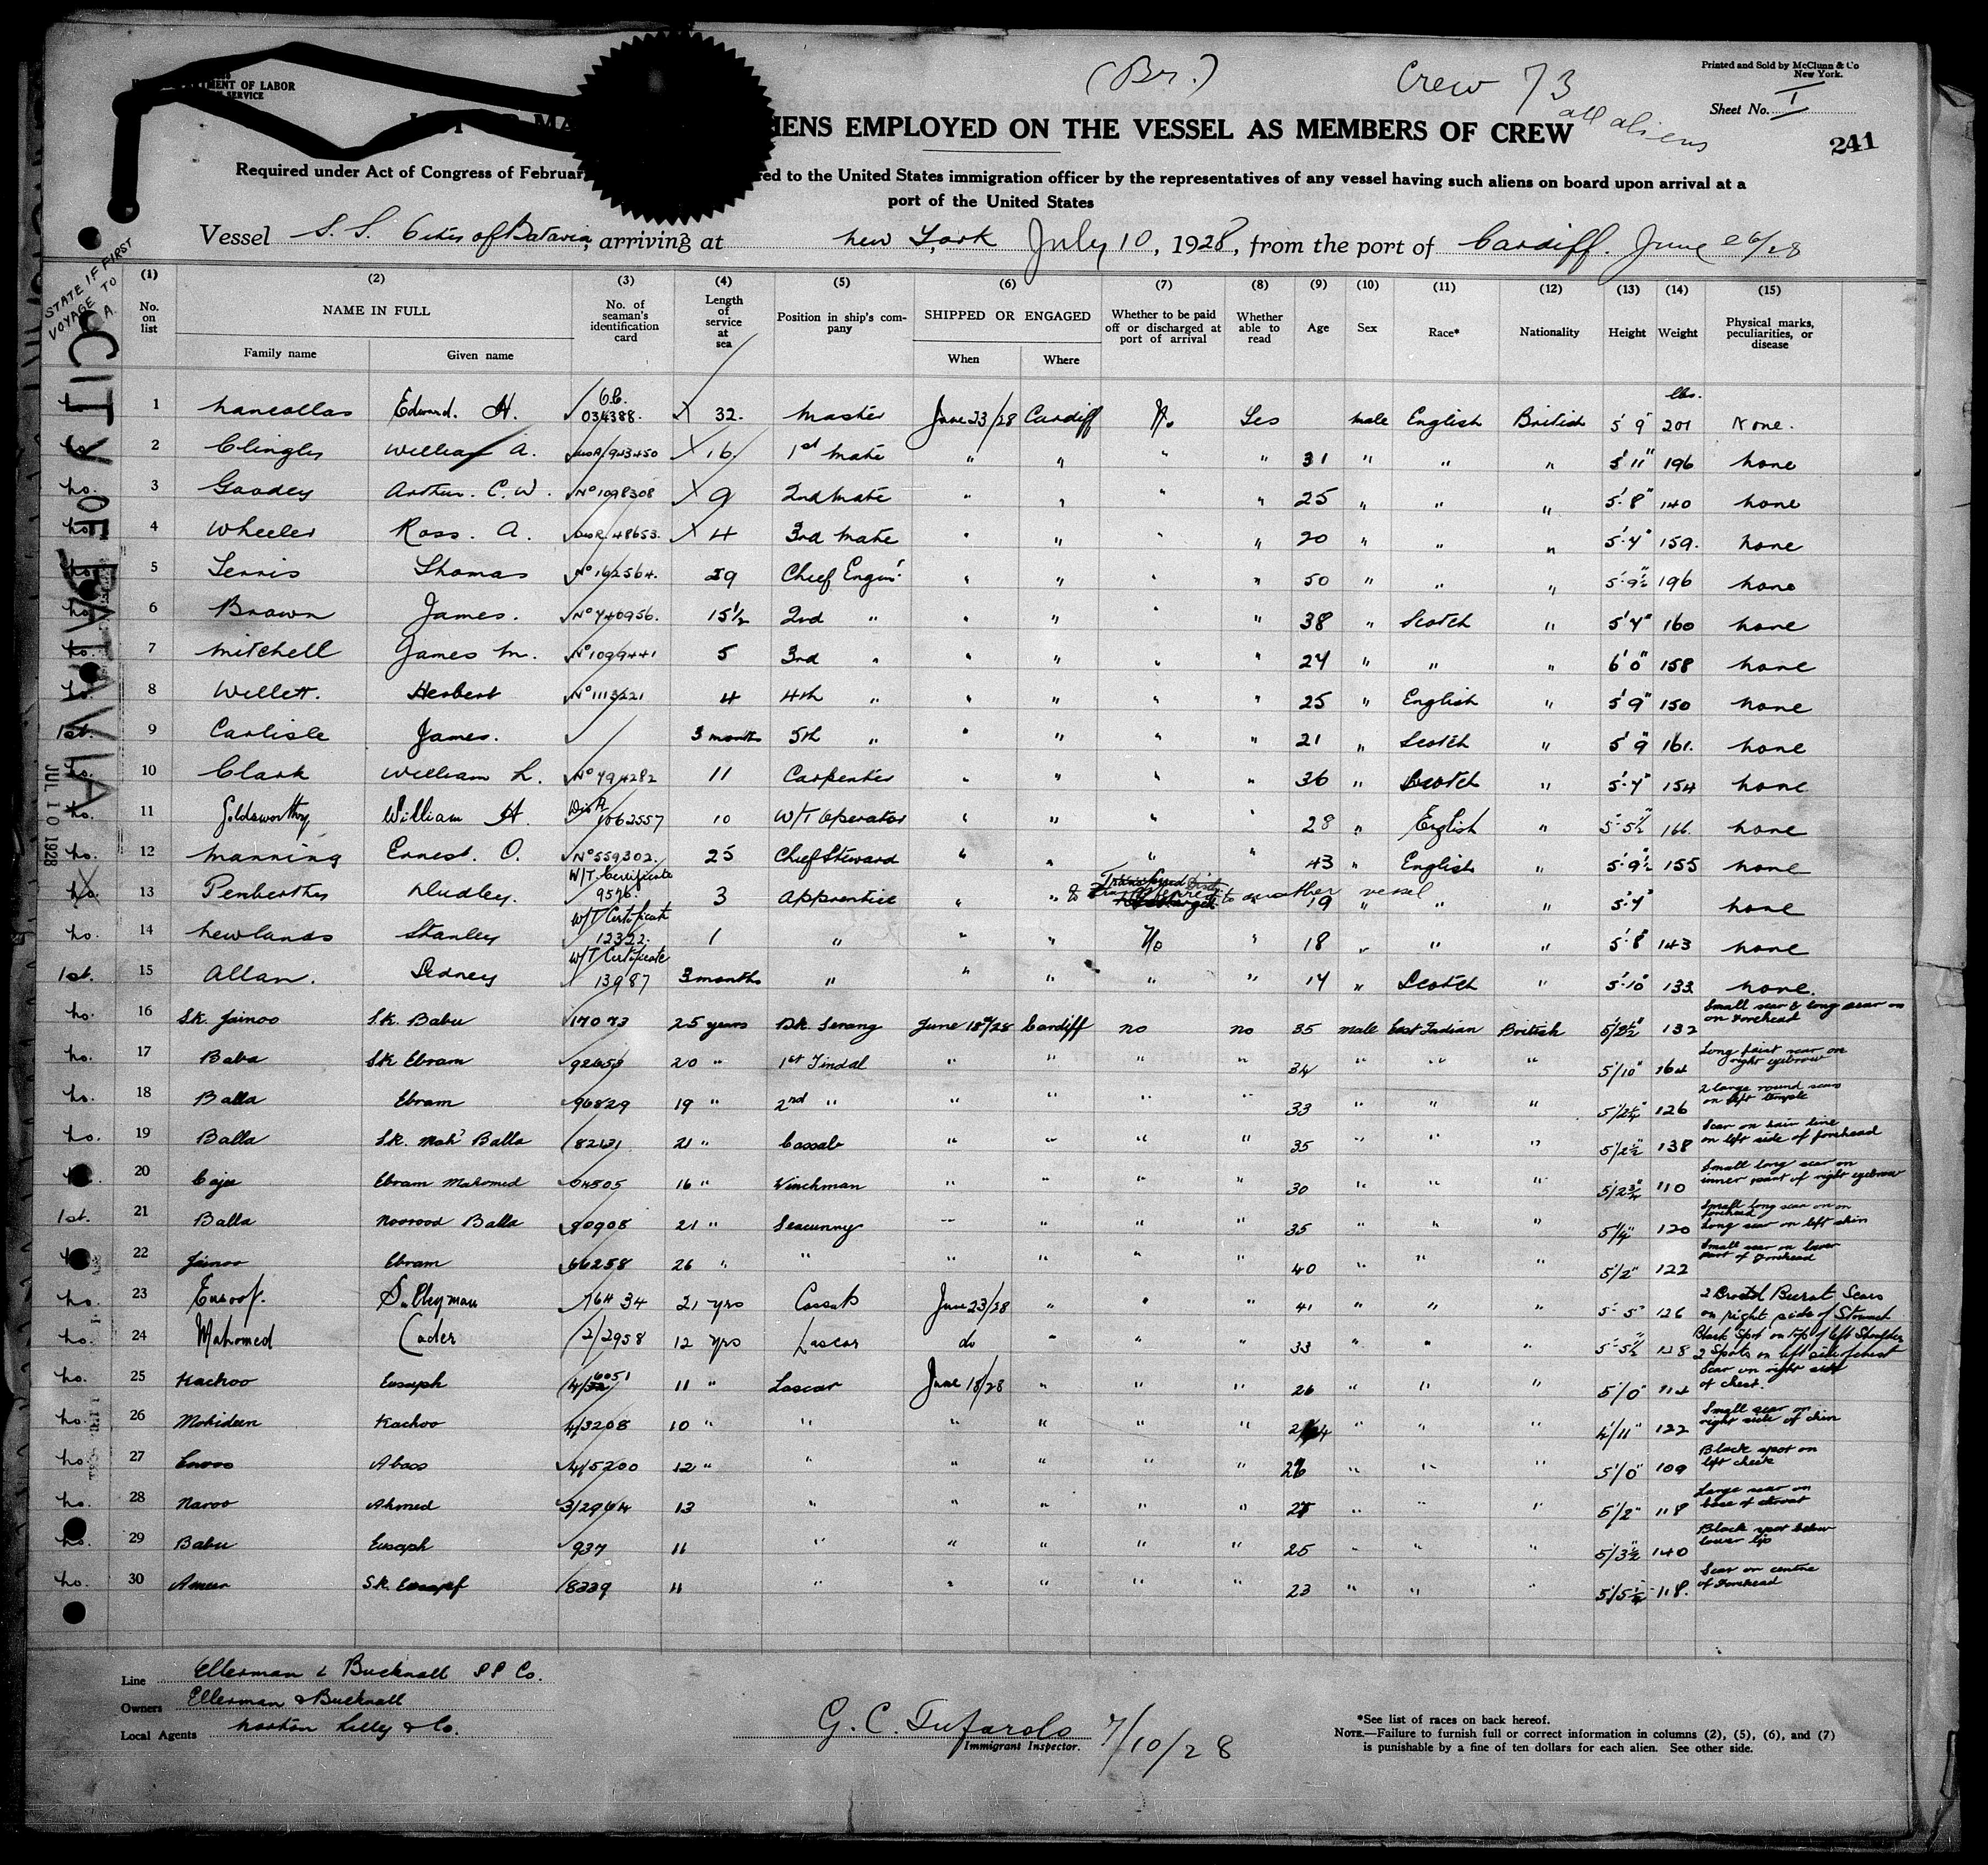 (Br.)
Crew 73
all aliens
Printed and Sold by McClunn & Co
New York.
Sheet No. I
241
MENT OF LABOR
SERVICE
IENS EMPLOYED ON THE VESSEL AS MEMBERS OF CREW
Required under Act of Congress of Februar ed to the United States immigration officer by the representatives of any vessel having such aliens on board upon arrival at a
port of the United States
Vessel S. S. City of Batavia, arriving at New York July 10, 1928, from the port of Cardiff. June 26/28
STATE IF FIRST
VOYAGE TO
CITY OF BATAVIA
JUL 10 1928
(1) (2) (3) (4) (5) (6) (7) (8) (9) (10) (11) (12) (13) (14) (15)
No. on list NAME IN FULL No. of seaman's identification card Length of service at sea Position in ship's company SHIPPED OR ENGAGED Whether to be paid off or discharged at port of arrival Whether able to read Age Sex Race* Nationality Height Weight Physical marks, peculiarities, or disease
Family name Given name When Where
1 Nancollas Edward. H. 034388. 32. Master June 23/28 Cardiff No Yes male English British 5' 9" 201 lbs. None.
no. 2 William A. 943450 16. 1st Mate " " " " 31 " " " 5' 11" 196 none
no. 3 Goodey Arthur. C. W. No 1098308 9 2nd Mate " " " " 25 " " " 5' 8" 140 none
no. 4 Wheeler Ross. A. 48653. 4 3rd Mate " " " " 20 " " " 5' 7" 159. none
5 Thomas No 162564. 29 Chief Engin'r " " " " 50 " " " 5' 9½" 196 none
no. 6 Brown James. No 740956. 15½ 2nd " " " " " 38 " Scotch " 5' 7" 160 none
no. 7 Mitchell James M. No 1099441 5 3rd " " " " " 24 " " " 6' 0" 158 none
8 Willett. Herbert No 1113221 4 4th " " " " " 25 " English " 5' 9" 150 none
1st. 9 Carlisle James. 3 months 5th " " " " " 21 " Scotch " 5' 9 161. none
no. 10 Clark William L. No 794282 11 Carpenter " " " " 36 " Scotch " 5' 7" 154 none
no. 11 Goldsworthy William H. Dis A 1062557 10 W/T Operator " " " " 28 " English " 5' 5½" 166. none
no. 12 Manning Ernest. O. No 559302. 25 Chief Steward " " " " 43 " English " 5' 9½" 155 none
no. 13 Penberthy Dudley. W/T. Certificate 9576. 3 Apprentice " " Transferred to another vessel 19 " " " 5' 7" none
no. 14 Newlands Stanley W/T Certificate 12322. 1 " " " No " 18 " " " 5' 8" 143 none
1st. 15 Allan. Sidney W/T Certificate 13987 3 months " " " " " 17 " Scotch " 5' 10" 133 none.
no. 16 S.K. Jainoo S.K. Babu 17073 25 years Dk. Serang June 18th/28 Cardiff no no 35 male East Indian British 5/2½" 132 Small scar & long scar on on Forehead
no. 17 Baba S.K Ebram 20 " 1st Tindal " " " " 34 " " " 5/10" 164 Long faint scar on right eyebrow
no. 18 Balla Ebram 96829 19 " 2nd " " " " " 33 " " " 5/2¼" 126 2 large round scars on left temple
no. 19 Balla S.K. Mahd Balla 21 " Cassab " " " " 35 " " " 5/2½" 138 Scar on hair line on left side of forehead
20 Cajee Ebram Mahomed 04505 16 " Winchman " " " " 30 " " " 5/2¾" 110 Small long scar on inner part of right eyebrow
1st. 21 Balla Noorood Balla 80908 21 " Seacunny " " " " 35 " " " 5/4" 120 Small long scar on on forehead Long scar on left shin
22 Jainoo Ebram 66258 26 " " " " " " 40 " " " 5/2" 122 Small scar on lower part of Forehead
no. 23 Eusoof. Sulleyman 76434 21 yrs Cassab June 23/28 " " " 41 " " " 5' 5" 126 2 Burnt Scars on right side of Stomach
no. 24 Mahomed Cader 2/2958 12 yrs Lascar do " " " 33 " " " 5' 5½" 128 Black Spot on top of left Shoulder 2 Spots on left side of chest
no. 25 Kachoo Eusaph 11 " Lascar June 18/28 " " " 26 " " " 5/0" 114 Scar on right side of chest.
no. 26 Mohideen Kachoo 4/3208 10 " " " " " " 24 " " " 4/11" 122 Small scar on right side of chin
no. 27 Abass 4/5200 12 " " " " " " 26 " " " 5/0" 109 Black spot on left cheek
no. 28 Naroo Ahmed 3/2964 13 " " " " " " " " 5/2" 118 Large scar on base of throat
no. 29 Babu Eusaph 937 11 " " " " " 25 " " " 5/3½" 140 Black spot below lower lip
no. 30 Ameer S.K. 8229 11 " " " " " 23 " " " 118. Scar on centre of Forehead
Line Ellerman & Bucknall S S Co.
Owners Ellerman & Bucknall
Local Agents Norton Lilly & Co.
G. C. Tufarolo 7/10/28
Immigrant Inspector.
*See list of races on back hereof.
NOTE.—Failure to furnish full or correct information in columns (2), (5), (6), and (7)
is punishable by a fine of ten dollars for each alien. See other side.